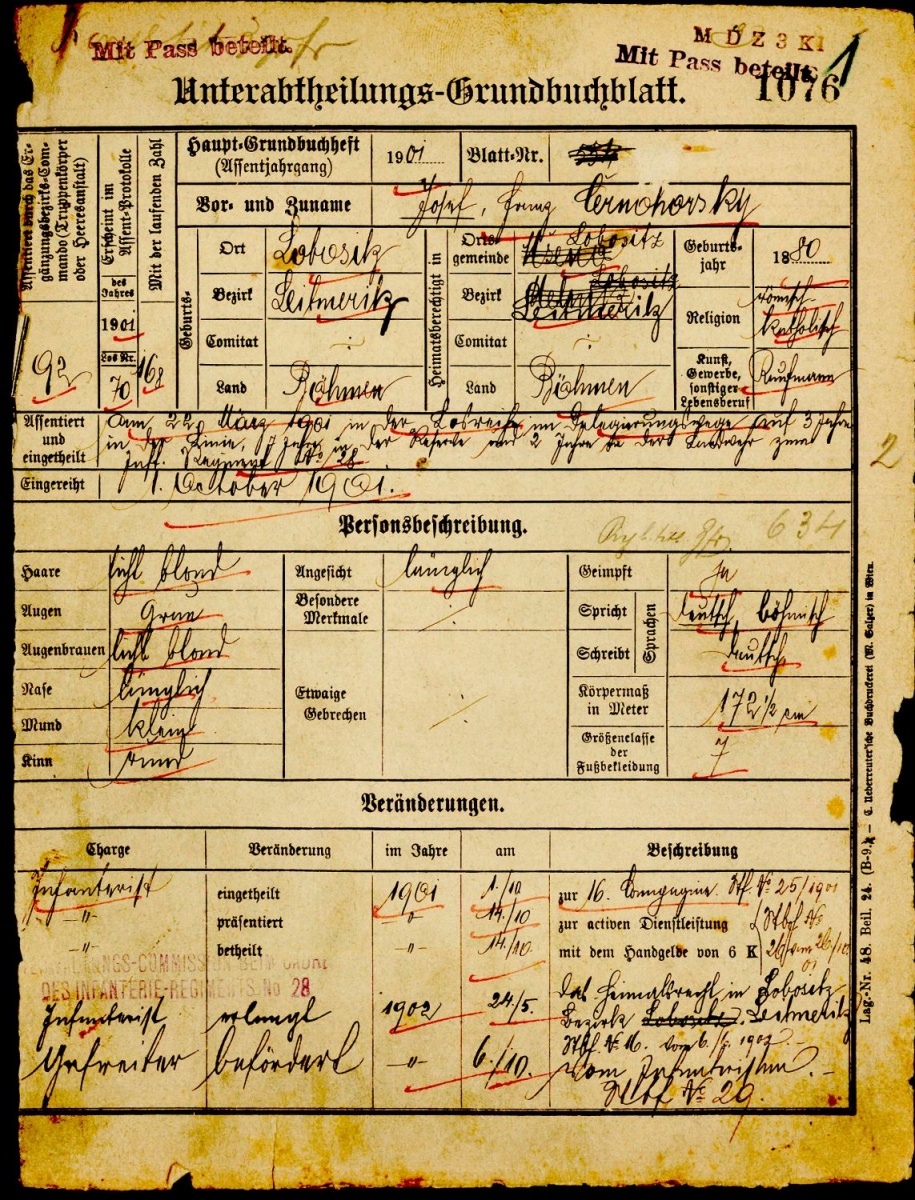 Mit Pass beteilt.
M D Z 3 Kl
Mit Pass beteilt.
1
Unterabtheilungs-Grundbuchblatt.
1076
Assentiert durch das Ergänzungsbezirks-Commando (Truppenkörper oder Heeresanstalt)
92
Erscheint im Assent-Protokolle
des Jahres
1901
Los Nr.
70
Mit der laufenden Zahl
168
Haupt-Grundbuchheft
(Assentjahrgang)
1901
Blatt-Nr.
Vor- und Zuname
Josef, Franz Černohorsky
Geburts-
Ort
Lobositz
Bezirk
Leitmeritz
Comitat
Land
Böhmen
Heimatsberechtigt in
Ortsgemeinde
Lobositz
Bezirk
Lobositz
Leitmeritz
Comitat
Land
Böhmen
Geburtsjahr
1880
Religion
römisch
katholisch
Kunst, Gewerbe, sonstiger Lebensberuf
Kaufmann
Assentiert und eingetheilt
am 22. März 1901 in der Losreihe im Delegierungswege auf 3 Jahre
in der Linie, 7 Jahre in der Reserve und 2 Jahre in der Landwehr zum
Inft. Regment No 28
2
Eingereiht
1. October 1901.
Personsbeschreibung.
634
Haare
licht blond
Augen
Grau
Augenbrauen
licht blond
Nase
länglich
Mund
klein
Kinn
rund
Angesicht
länglich
Besondere Merkmale
Etwaige Gebrechen
Geimpft
Ja
Spricht
Sprachen
deutsch, böhmisch
Schreibt
deutsch
Körpermaß in Meter
172 1/2 cm
Größenclasse der Fußbekleidung
7
Veränderungen.
Charge
Veränderung
im Jahre
am
Beschreibung
Infanterist
eingetheilt
1901
1./10
zur 16. Compagnie. Stbf. No 25/1901
-"-
präsentiert
"
14/10
zur activen Dienstleistung
Stbf No
-"-
betheilt
-"-
14/10.
mit dem Handgelde von 6 K
26 vom 26/10
01
VERWALTUNGS-COMMISSION BEIM CADRE
DES INFANTERIE-REGIMENTS No 28
Infanterist
erlangt
1902
24./5.
das Heimatsrecht in Lobositz
Bezirk Lobositz. Leitmeritz
Gefreiter
befördert
-"-
6./10.
vom Infanteristen.
Stbf. No 29.
Lag.-Nr. 48. Beil. 24. (B-9.) — C. Ueberreuter'sche Buchdruckerei (M. Salzer) in Wien.